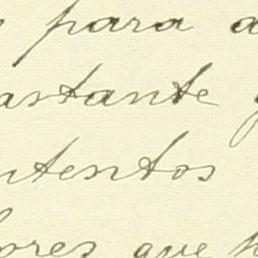 para a
astante
ntentos
ores que